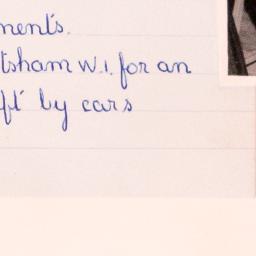 ments.
tsham W.I. for an
ft by cars